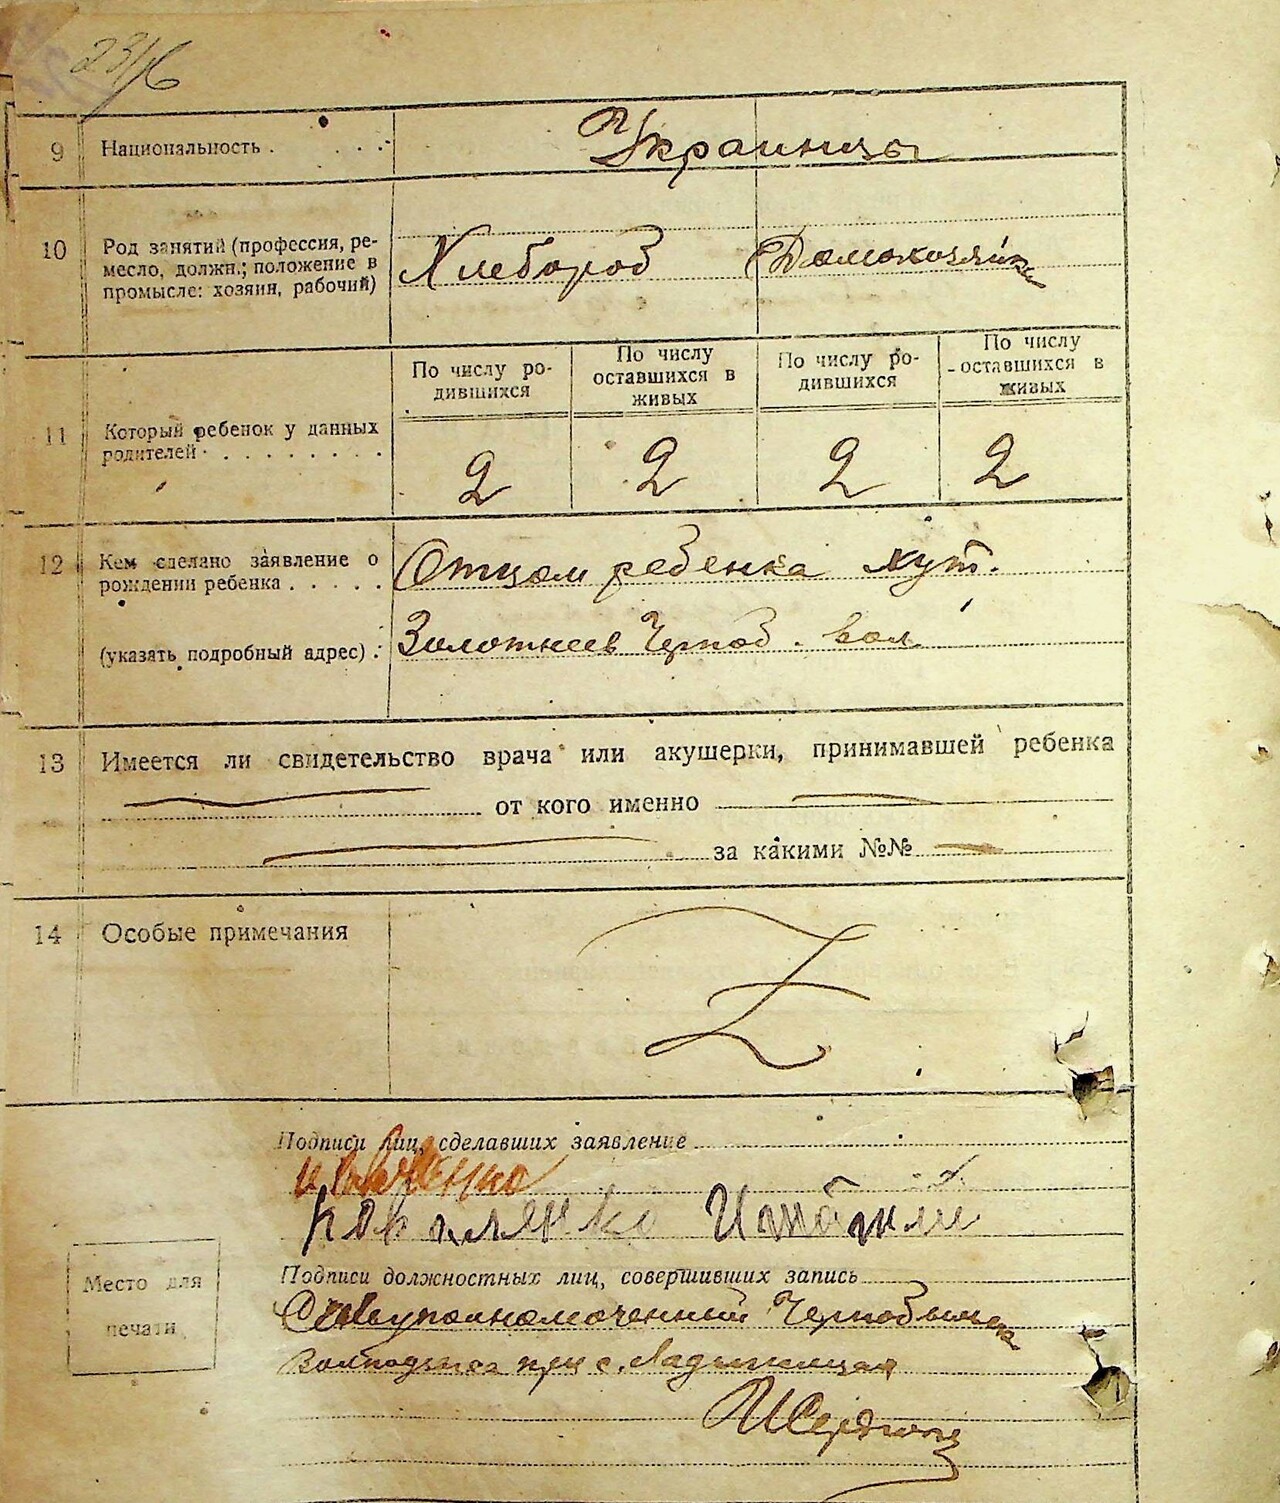 23/6
9 Национальность . . . . Украинцы
10 Род занятий (профессия, ре-
месло, должн.; положение в
промысле: хозяин, рабочий)
Хлебороб Домохозяйка
По числу ро-
дившихся
По числу
оставшихся в
живых
По числу ро-
дившихся
По числу
оставшихся в
живых
11 Который ребенок у данных
родителей . . . . . . . . .
2 2 2 2
12 Кем сделано заявление о
рождении ребенка . . . . .
Отцом ребенка хут.
(указать подробный адрес) :
Золотнеев Черноб. вол
13 Имеется ли свидетельство врача или акушерки, принимавшей ребенка
от кого именно
за какими №№
14 Особые примечания
Z
Подписи лиц, сделавших заявление
Коваленко
Подписи должностных лиц, совершивших запись
Место для
печати
Сельуполномоченный Чернобыльск
с. Ладыжицах